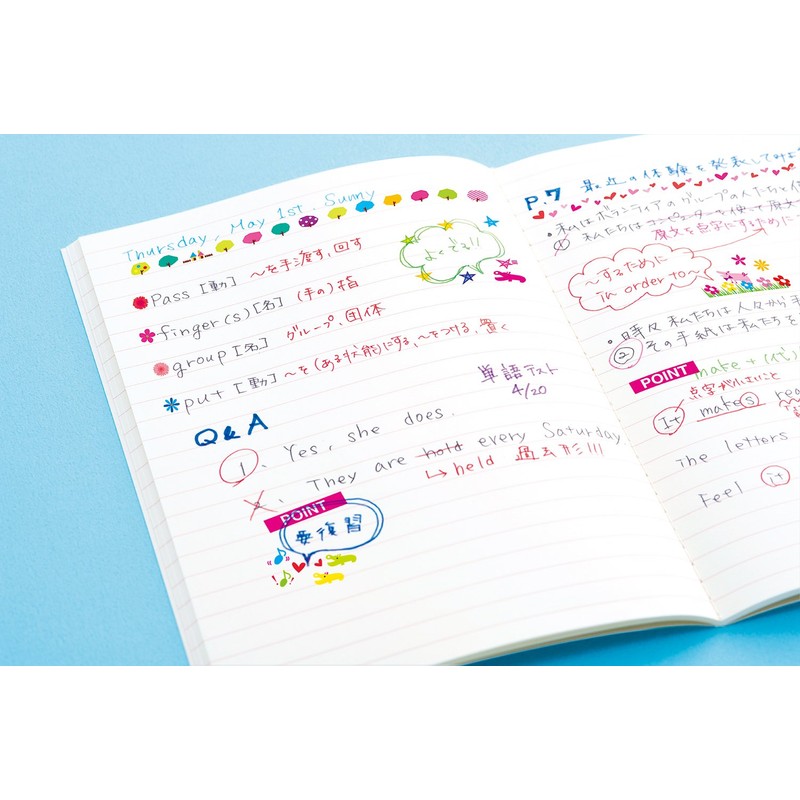 Thursday, May 1st. Sunny
よくでる!!
Pass [動] 〜を手渡す, 回す
finger(s) [名] (手の)指
group [名] グループ, 団体
put [動] 〜を(ある状態)にする, 〜をつける, 置く
単語テスト
4/20
Q&A
1. Yes, she does.
They are hold every Saturday
↳ held 過去形!!!
POINT
要復習
P.7 最近の体験を発表してみよ
・私はボランティアのグループの人たちと
① 私たちはコンピューターを使って
原文を点字にするために
〜するために
in order to〜
・時々私たちは人々から手
② その手紙は私たちを
POINT make + (代)
点字が
It makes
The letters
Feel it